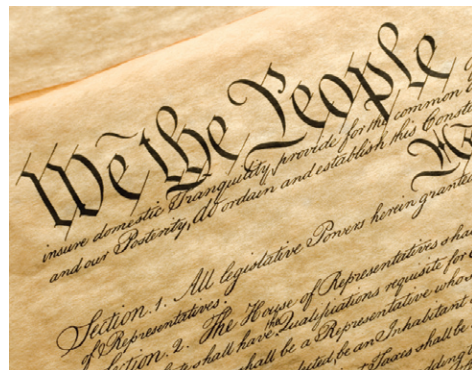 We the People
insure domestic Tranquility, provide for the common
and our Posterity, do ordain and establish this Const
Section. 1. All legislative Powers herein grante
of Representatives.
Section. 2. The House of Representatives sha
shall have the Qualifications requisite for
shall be a Representative who
be an Inhabitant
Taxes shall be